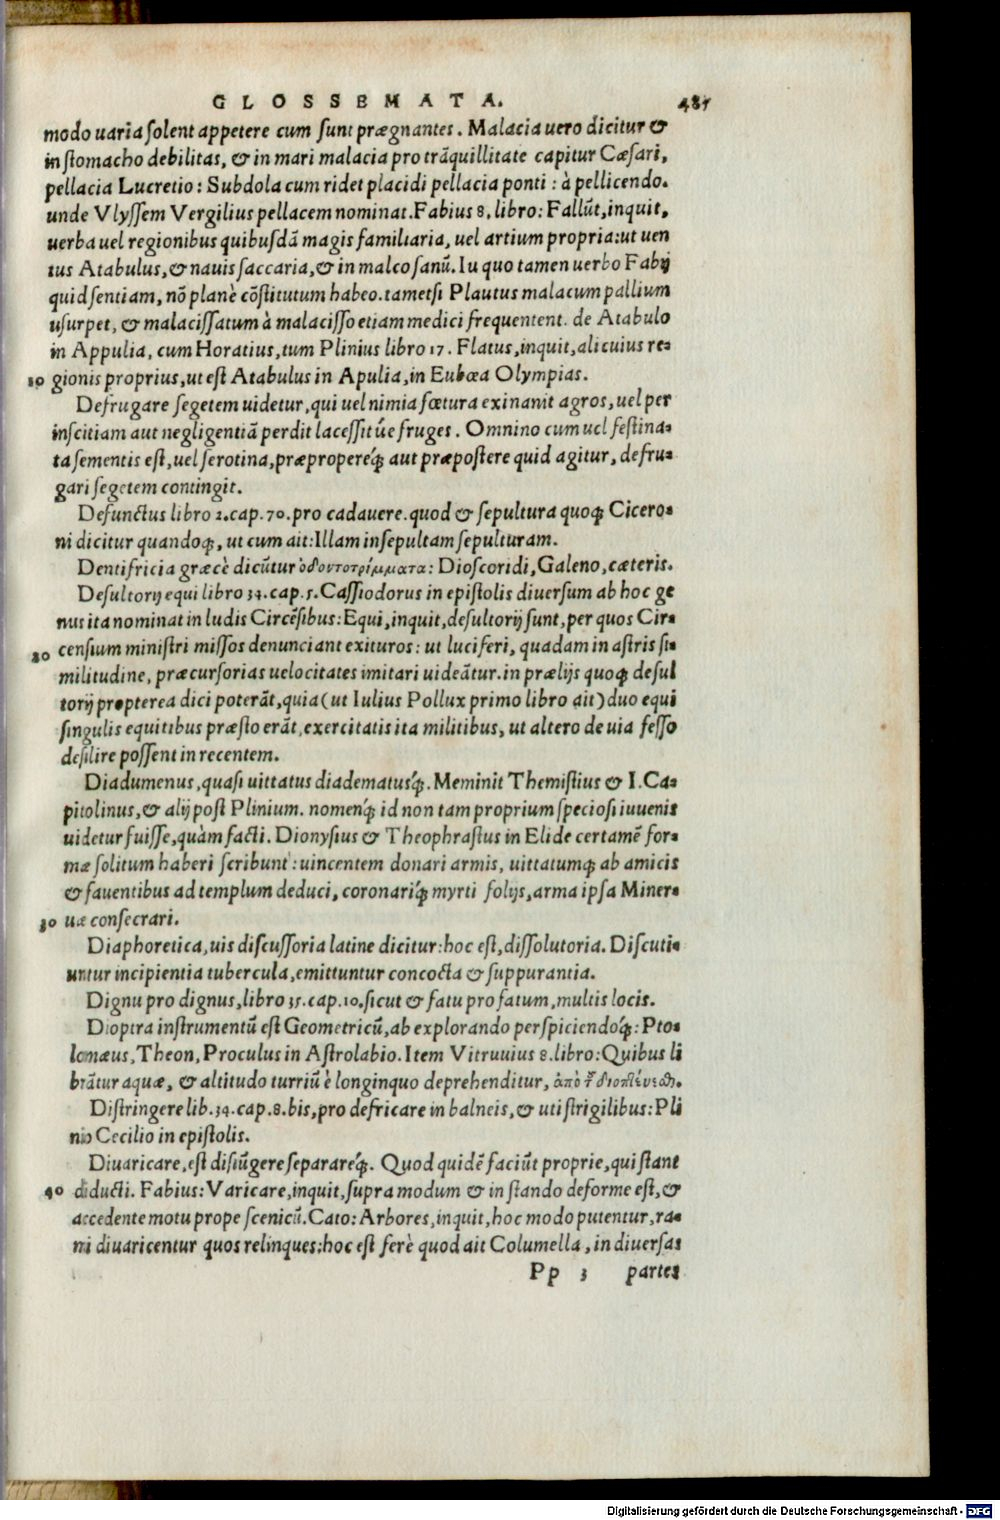 GLOSSEMATA. 485
modo uaria solent appetere cum sunt prægnantes. Malacia uero dicitur &
in stomacho debilitas, & in mari malacia pro trãquillitate capitur Cæsari,
pellacia Lucretio: Subdola cum ridet placidi pellacia ponti: à pellicendo.
unde Vlyssem Vergilius pellacem nominat. Fabius 8. libro: Fallũt, inquit,
uerba uel regionibus quibusdã magis familiaria, uel artium propria: ut uen
tus Atabulus, & nauis saccaria, & in malco sanũ. In quo tamen uerbo Fabij
quid sentiam, nõ planè cõstitutum habeo. tametsi Plautus malacum pallium
usurpet, & malacissatum à malacisso etiam medici frequentent. de Atabulo
in Appulia, cum Horatius, tum Plinius libro 17. Flatus, inquit, alicuius re-
10 gionis proprius, ut est Atabulus in Apulia, in Eubœa Olympias.
Defrugare segetem uidetur, qui uel nimia fœtura exinanit agros, uel per
inscitiam aut negligentiã perdit lacessit úe fruges. Omnino cum uel festina-
ta sementis est, uel serotina, præpropereq́; aut præpostere quid agitur, defru-
gari segetem contingit.
Defunctus libro 2. cap. 70. pro cadauere. quod & sepultura quoq; Cicero-
ni dicitur quandoq;, ut cum ait: Illam insepultam sepulturam.
Dentifricia græcè dicũtur ὀδοντοτρίμματα: Dioscoridi, Galeno, cæteris.
Desultorij equi libro 34. cap. 5. Cassiodorus in epistolis diuersum ab hoc ge
nus ita nominat in ludis Circẽsibus: Equi, inquit, desultorij sunt, per quos Cir-
20 censium ministri missos denunciant exituros: ut luciferi, quadam in astris si-
militudine, præcursorias uelocitates imitari uideãtur. in prælijs quoq; desul
torij propterea dici poterãt, quia (ut Iulius Pollux primo libro ait) duo equi
singulis equitibus præsto erãt, exercitatis ita militibus, ut altero de uia fesso
desilire possent in recentem.
Diadumenus, quasi uittatus diadematusq́;. Meminit Themistius & I. Ca-
pitolinus, & alij post Plinium. nomenq́; id non tam proprium speciosi iuuenis
uidetur fuisse, quàm facti. Dionysius & Theophrastus in Elide certamẽ for-
mæ solitum haberi scribunt: uincentem donari armis, uittatumq; ab amicis
& fauentibus ad templum deduci, coronariq́; myrti folijs, arma ipsa Miner-
30 uæ consecrari.
Diaphoretica, uis discussoria latine dicitur: hoc est, dissolutoria. Discuti-
untur incipientia tubercula, emittuntur concocta & suppurantia.
Dignu pro dignus, libro 35. cap. 10. sicut & fatu pro fatum, multis locis.
Dioptra instrumentũ est Geometricũ, ab explorando perspiciendoq́;: Pto-
lomæus, Theon, Proculus in Astrolabio. Item Vitruuius 8. libro: Quibus li
brãtur aquæ, & altitudo turriũ è longinquo deprehenditur, ἀπὸ τ͂ διοπτέυεϑ.
Distringere lib. 34. cap. 8. bis, pro defricare in balneis, & uti strigilibus: Pli
nio Cecilio in epistolis.
Diuaricare, est disiũgere separareq́;. Quod quidẽ faciũt proprie, qui stant
40 diducti. Fabius: Varicare, inquit, supra modum & in stando deforme est, &
accedente motu prope scenicũ. Cato: Arbores, inquit, hoc modo putentur, ra-
mi diuaricentur quos relinques: hoc est ferè quod ait Columella, in diuersas
Pp 3 partes
Digitalisierung gefördert durch die Deutsche Forschungsgemeinschaft - DFG